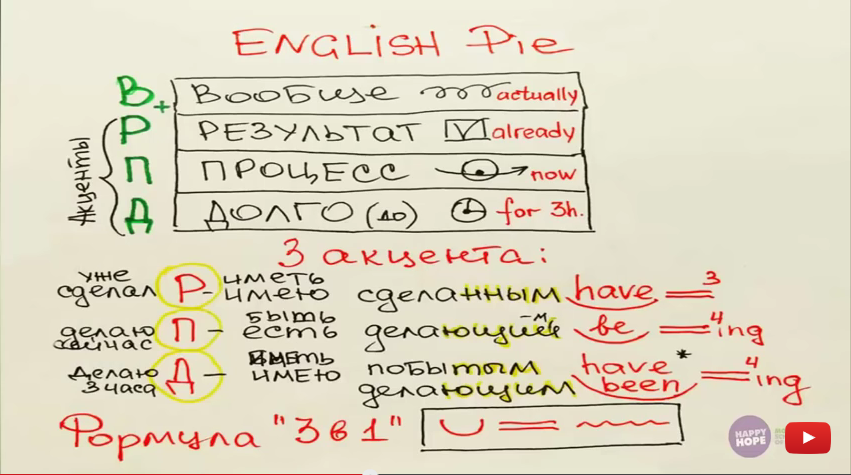 ENGLISH Pie
В + ВООБЩЕ actually
Р РЕЗУЛЬТАТ V already
П ПРОЦЕСС now
Д ДОЛГО (до) for 3h.
Акценты
3 акцента:
уже сделал Р - иметь имею сделанным have 3
делаю сейчас П - быть есть делающий -м be 4 ing
Делаю 3 часа Д - иметь имею побытым делающим have been * 4 ing
Формула "3 в 1"
HAPPY HOPE